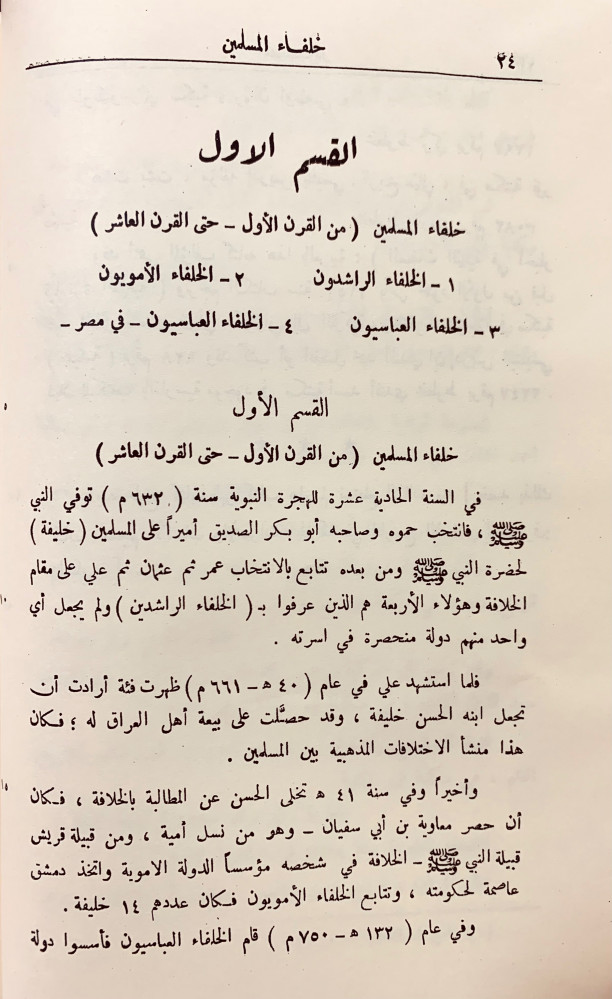 خلفاء المسلمين
٢٤
القسم الاول
خلفاء المسلمين (من القرن الأول ـ حتى القرن العاشر)
١ ـ الخلفاء الراشدون ٢ ـ الخلفاء الأمويون
٣ ـ الخلفاء العباسيون ٤ ـ الخلفاء العباسيون ـ في مصر ـ
القسم الأول
٥
خلفاء المسلمين (من القرن الأول ـ حتى القرن العاشر)
في السنة الحادية عشرة للهجرة النبوية سنة (٦٣٢ م) توفي النبي
ﷺ ، فانتخب حموه وصاحبه أبو بكر الصديق أميراً على المسلمين (خليفة)
لحضرة النبي ﷺ ومن بعده تتابع بالانتخاب عمر ثم عثمان ثم علي على مقام
الخلافة وهؤلاء الأربعة هم الذين عرفوا بـ (الخلفاء الراشدين) ولم يجعل أي
١٠
واحد منهم دولة منحصرة في اسرته .
فلما استشهد علي في عام (٤٠ هـ ـ ٦٦١ م) ظهرت فئة أرادت أن
تجعل ابنه الحسن خليفة ، وقد حصَّلت على بيعة أهل العراق له ؛ فكان
هذا منشأ الاختلافات المذهبية بين المسلمين .
١٥
وأخيراً وفي سنة ٤١ هـ تخلى الحسن عن المطالبة بالخلافة ، فكان
أن حصر معاوية بن أبي سفيان ـ وهو من نسل أمية ، ومن قبيلة قريش
قبيلة النبي ﷺ ـ الخلافة في شخصه مؤسساً الدولة الاموية واتخذ دمشق
عاصمة لحكومته ، وتتابع الخلفاء الأمويون فكان عددهم ١٤ خليفة .
وفي عام (١٣٢ هـ ـ ٧٥٠ م) قام الخلفاء العباسيون فأسسوا دولة